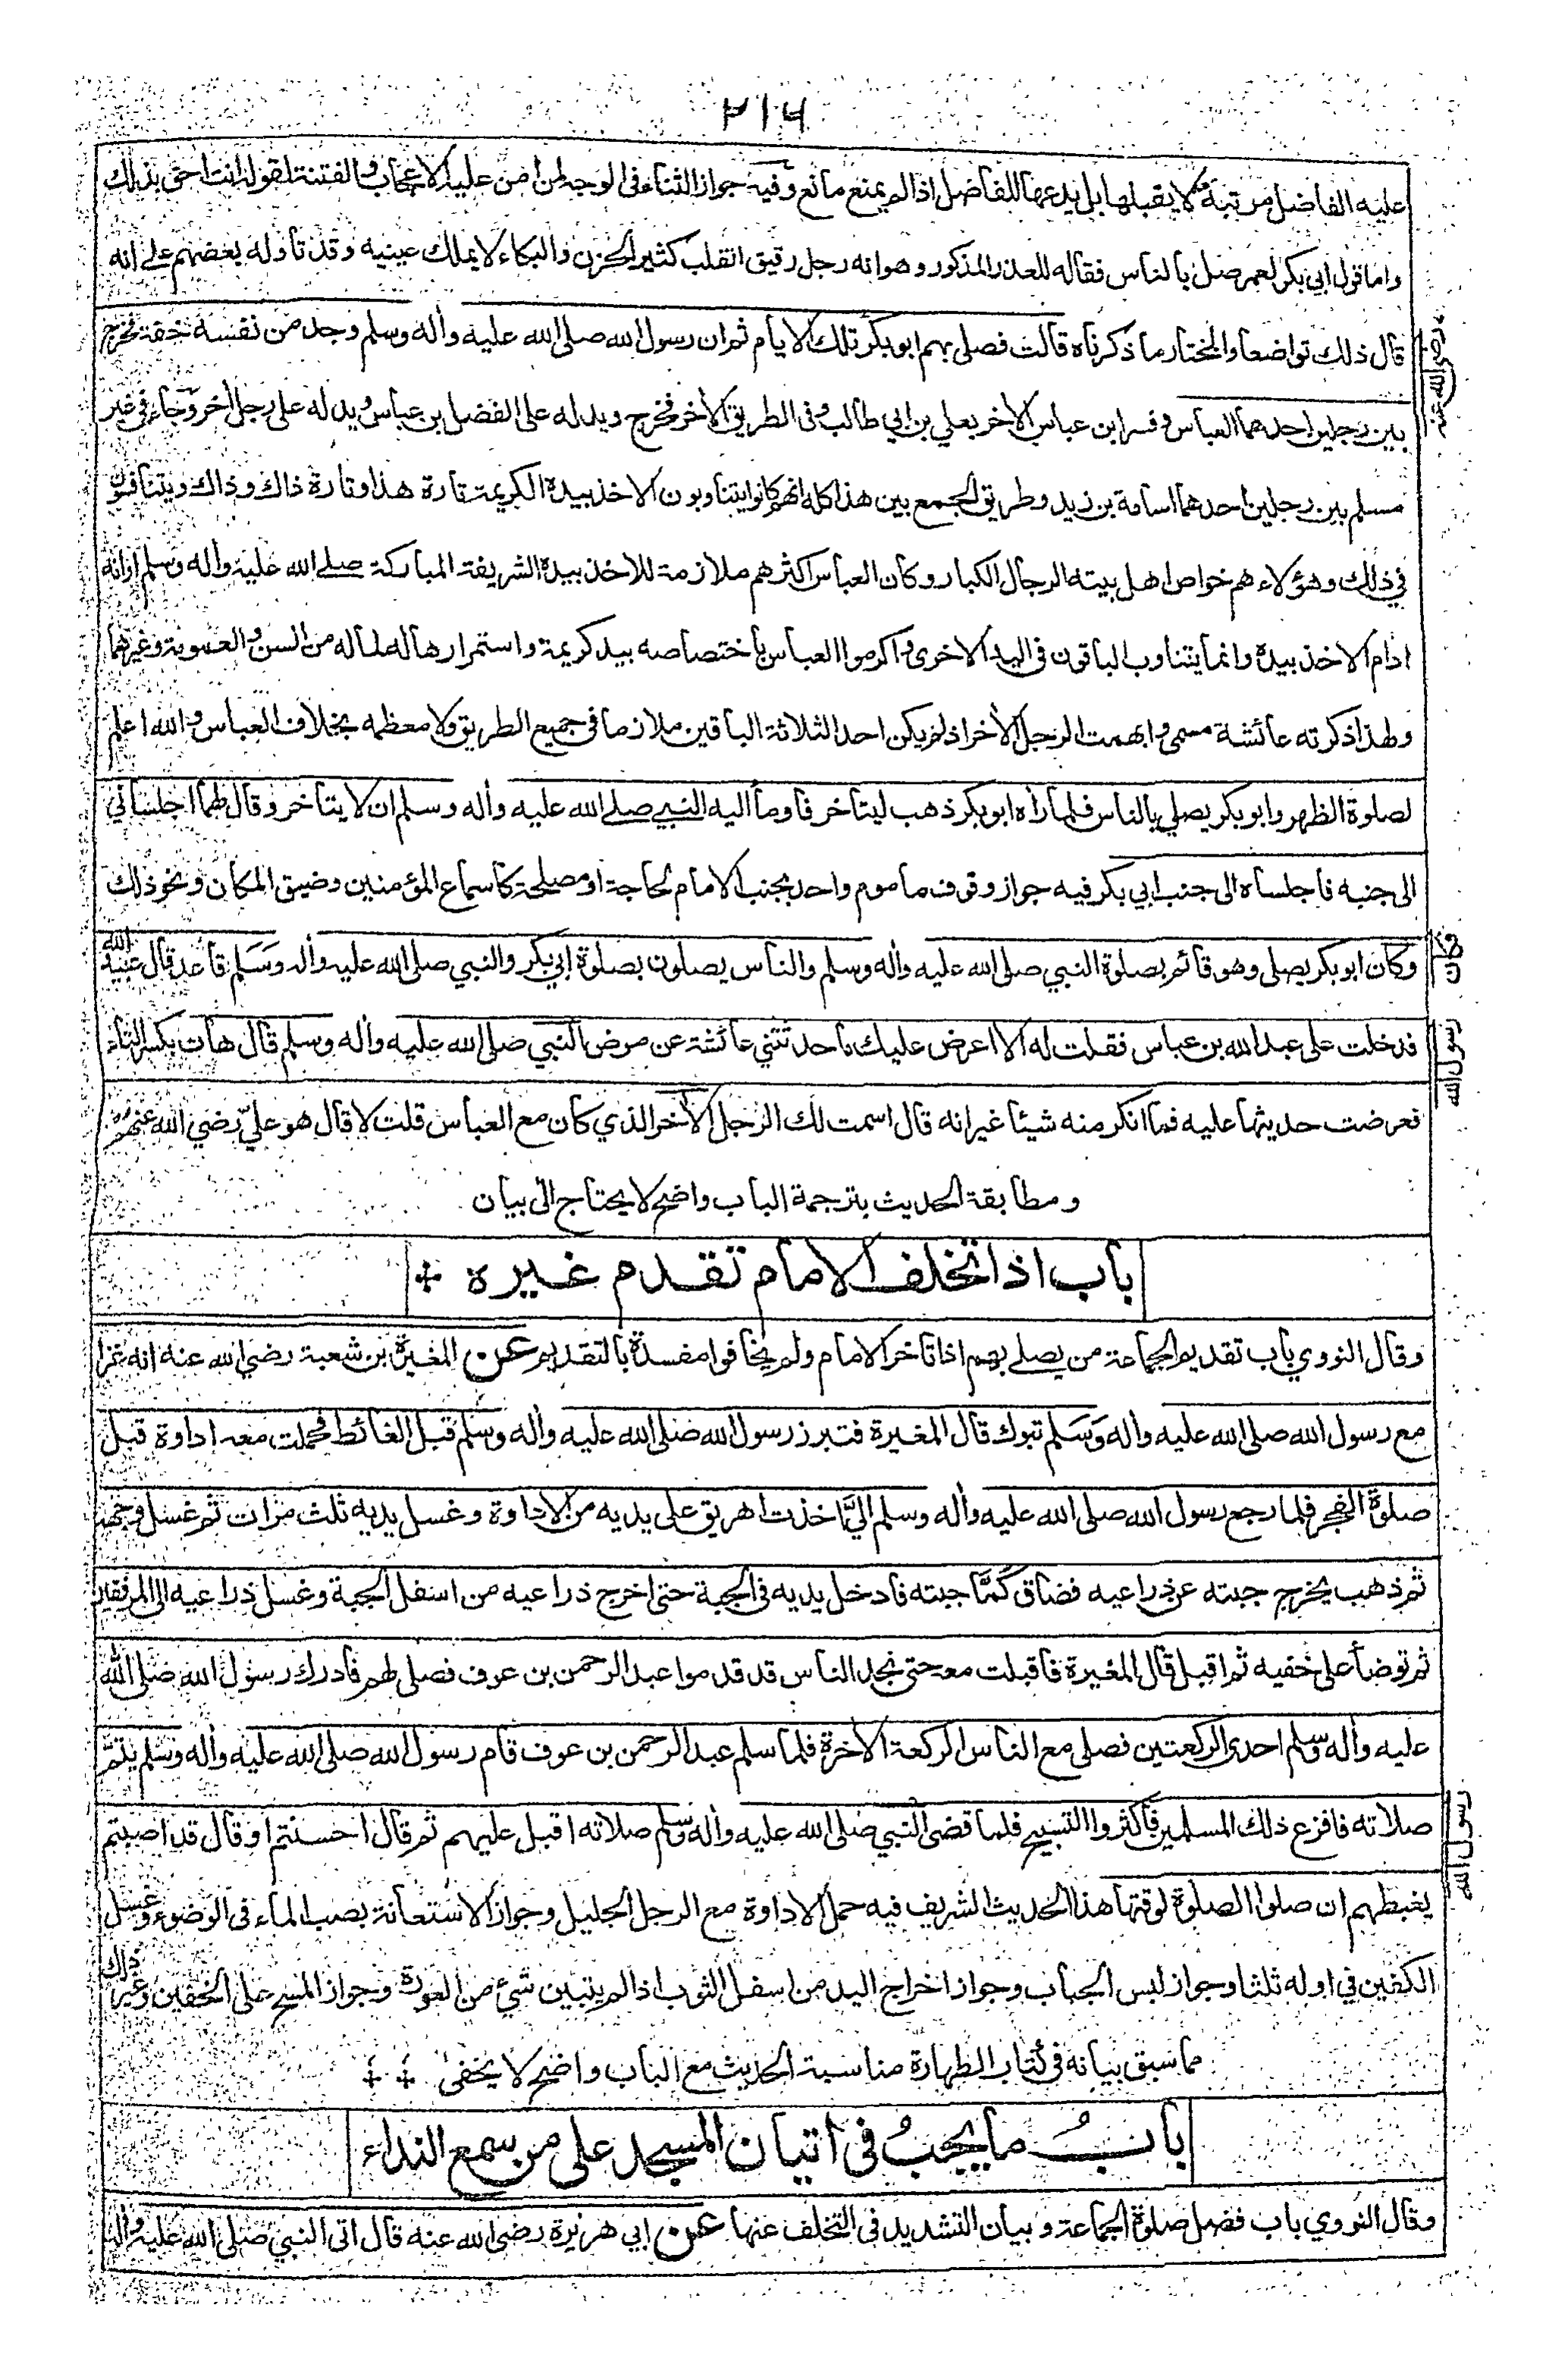 ٢١٦
عليه الفاضل مرتبة لا يقبلها بل يدعها للفاضل اذا لم يمنع مانع وفيه جواز الثناء فى الوجه لمن امن عليه الاعجاب والفتنة لقوله انت احق بذلك
واما قول ابي بكر لعمر صل بالناس فقاله للعذر المذكور وهو انه رجل رقيق القلب كثير الحزن والبكاء لا يملك عينيه وقد تأوله بعضهم على انه
قال ذلك تواضعا والمختار ما ذكرناه قالت فصلى بهم ابو بكر تلك الايام ثم ان رسول الله صلى الله عليه وأله وسلم وجد من نفسه خفة فخرج
رضي الله عنه
بين رجلين احدهما العباس وفسر ابن عباس الاخر بعلي بن ابي طالب وفى الطريق الأخر فخرج ويد له على الفضل بن عباس ويد له على رجل أخر وجاء فى غير
مسلم بين رجلين احدهما اسامة بن زيد وطريق الجمع بين هذا كله انهم كانوا يتناوبون الاخذ بيده الكريمة تارة هذا وتارة ذاك وذاك ويتنافسون
في ذلك وهؤلاء هم خواص اهل بيته الرجال الكبار وكان العباس اكثرهم ملازمة للاخذ بيده الشريفة المباركة صلى الله عليه وأله وسلم او انه
ادام الاخذ بيده وانما يتناوب الباقون فى اليد الاخرى واكرموا العباس باختصاصه بيد كريمة واستمرارها له لما له من السن والعمومة وغيرهما
ولهذا ذكرته عائشة مسمى وابهمت الرجل الأخر اذ لم يكن احد الثلاثة الباقين ملازما فى جميع الطريق ولا معظمه بخلاف العباس والله اعلم
لصلوة الظهر وابو بكر يصلي بالناس فلما رأه ابو بكر ذهب ليتأخر فاومأ اليه النبي صلى الله عليه وأله وسلم ان لا يتأخر وقال لهما اجلساني
الى جنبه فاجلساه الى جنب ابي بكر فيه جواز وقوف مأموم واحد بجنب الامام لحاجة او مصلحة كاسماع المؤمنين وضيق المكان ونحو ذلك
فكان
وكان ابو بكر يصلى وهو قائم بصلوة النبي صلى الله عليه وأله وسلم والناس يصلون بصلوة ابي بكر والنبي صلى الله عليه وأله وسلم قاعد قال عبيد الله
رسول الله
فدخلت على عبد الله بن عباس فقلت له الا اعرض عليك ما حدثتني عائشة عن مرض النبي صلى الله عليه وأله وسلم قال هات بكسر التاء
فعرضت حديثها عليه فما انكر منه شيئا غير انه قال اسمت لك الرجل الأخر الذي كان مع العباس قلت لا قال هو علي رضي الله عنهم
ومطابقة الحديث بترجمة الباب واضح لا يحتاج الى بيان
باب اذا تخلف الامام تقدم غيره
وقال النووي باب تقديم الجماعة من يصلي بهم اذا تأخر الامام ولم يخافوا مفسدة بالتقديم عن المغيرة بن شعبة رضي الله عنه انه غزا
مع رسول الله صلى الله عليه وأله وسلم تبوك قال المغيرة فتبرز رسول الله صلى الله عليه وأله وسلم قبل الغائط فحملت معه اداوة قبل
صلوة الفجر فلما رجع رسول الله صلى الله عليه وأله وسلم اليَّ اخذت اهريق على يديه من الاداوة وغسل يديه ثلث مرات ثم غسل وجهه
ثم ذهب يخرج جبته عن ذراعيه فضاق كُمَّا جبته فادخل يديه فى الجبة حتى اخرج ذراعيه من اسفل الجبة وغسل ذراعيه الى المرفقين
ثم توضأ على خفيه ثم اقبل قال المغيرة فاقبلت معه حتى نجد الناس قد قدموا عبد الرحمن بن عوف فصلى لهم فادرك رسول الله صلى الله
عليه وأله وسلم احدى الركعتين فصلى مع الناس الركعة الأخرة فلما سلم عبد الرحمن بن عوف قام رسول الله صلى الله عليه وأله وسلم يتم
رسول الله
صلاته فافزع ذلك المسلمين فاكثروا التسبيح فلما قضى النبي صلى الله عليه وأله وسلم صلاته اقبل عليهم ثم قال احسنتم او قال قد اصبتم
يغبطهم ان صلوا الصلوة لوقتها هذا الحديث الشريف فيه حمل الاداوة مع الرجل الجليل وجواز الاستعانة بصب الماء فى الوضوء وغسل
الكفين في اوله ثلثا وجواز لبس الجباب وجواز اخراج اليد من اسفل الثوب اذا لم يتبين شئ من العورة وجواز المسح على الخفين وغير ذلك
مما سبق بيانه فى كتاب الطهارة مناسبة الحديث مع الباب واضح لا يخفى
بابُ ما يجبُ فى اتيان المسجد على من سمع النداء
وقال النووي باب فضل صلوة الجماعة وبيان التشديد فى التخلف عنها عن ابي هريرة رضي الله عنه قال اتى النبي صلى الله عليه وأله